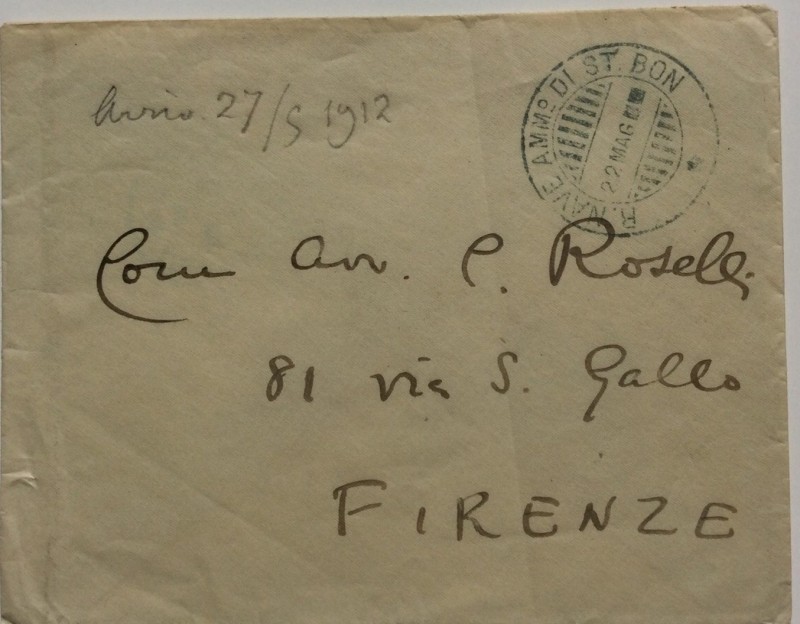 Arrivo 27/5 1912
R. NAVE AMMº DI ST. BON
22 MAG
Com Avv. C. Roselli
81 via S. Gallo
FIRENZE